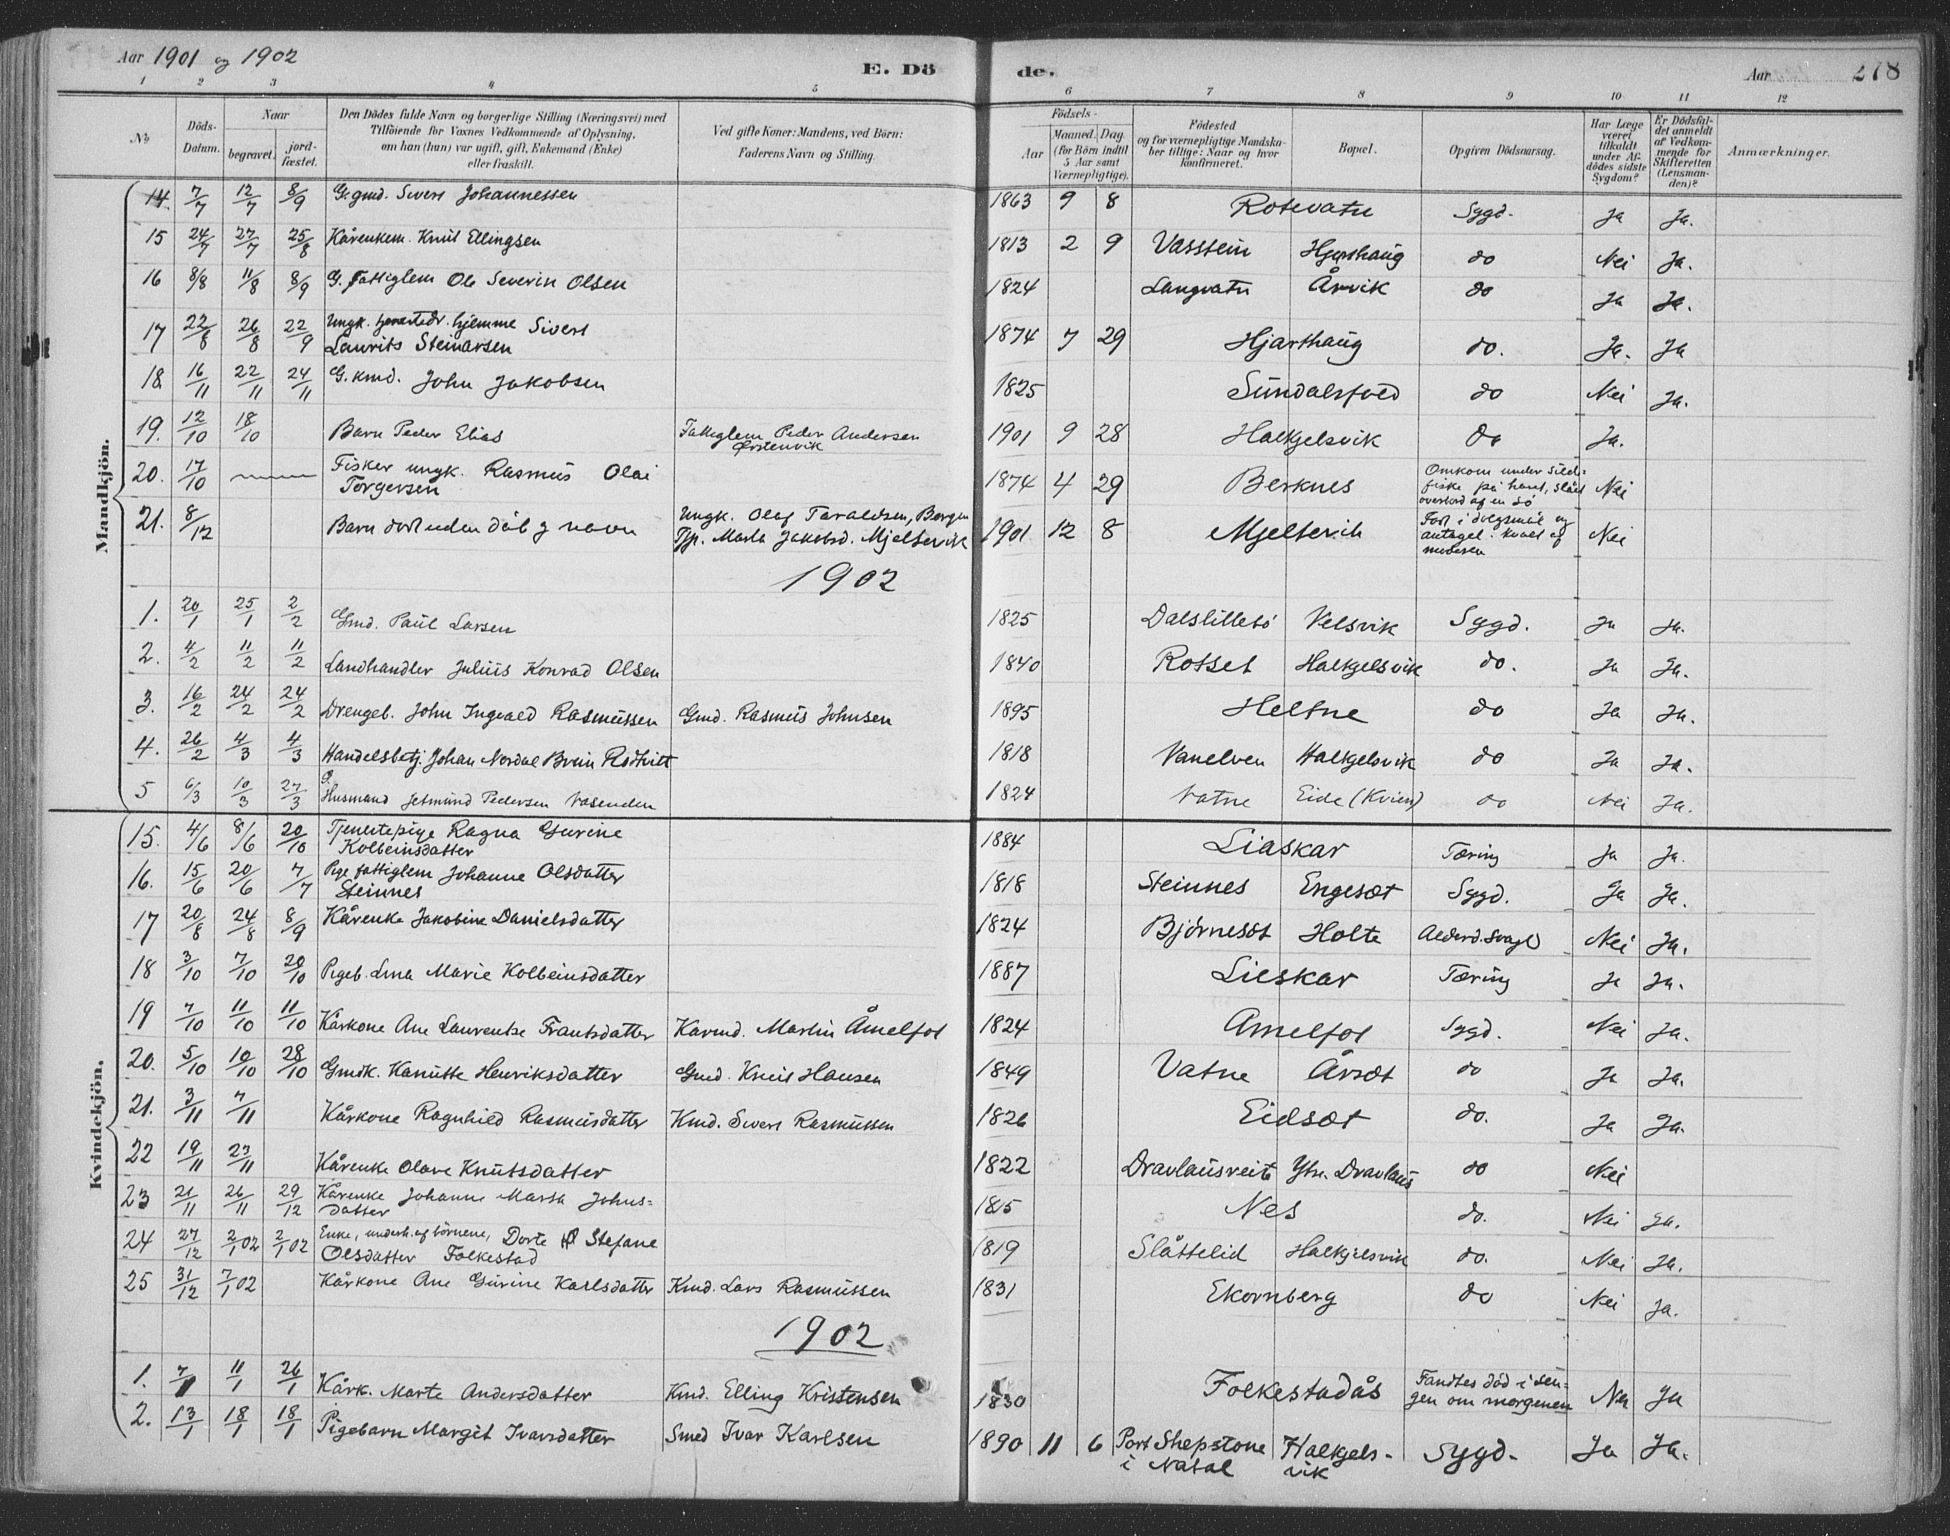 Aar 1901 og 1902 E. Dö de. Aar 278
1 2 3 4 5 6 7 8 9 10 11 12
No. Döds-Datum. Naar begravet. jord-fæstet. Den Dödes fulde Navn og borgerlige Stilling (Næringsvei) med Tilföiende for Voxnes Vedkommende af Oplysning, om han (hun) var ugift, gift, Enkemand (Enke) eller fraskilt. Ved gifte Koner: Mandens, ved Börn: Faderens Navn og Stilling. Födsels- Aar Maaned. Dag (for Börn indtil 5 Aar samt Værnepligtige). Födested og for værnepligtige Mandska-ber tillige: Naar og hvor konfirmeret. Bopæl. Opgiven Dödsaarsag. Har Læge været tilkaldt under Af-dödes sidste Sygdom? Er Dödsfal-det anmeldt af Vedkom-mende for Skifteretten (Lensman-den)? Anmærkninger.
Mandkjön.
14. 7/7 12/7 8/9 G. gmd. Sivert Johannessen 1863 9 8 Rotevatn Sygd. Ja Ja.
15 24/7 27/7 25/8 Kårenkem. Knut Ellingsen 1813 2 9 Vasstein Hjorthaug do Nei Ja.
16 8/8 11/8 8/9 G. fattiglem Ole Severin Olsen 1824 Langvatn Årvik do Ja Ja.
17 22/8 26/8 22/9 Ungk. hjemme Sivert
Laurits Steinarsen 1874 7 29 Hjorthaug do. Ja. Ja
18. 16/11 22/11 24/11 G. kmd. John Jakobsen 1825 Sundalsfold do Nei Ja.
19. 12/10 18/10 Barn Peder Elias Fattiglem Peder Andersen
Ørstenvik 1901 9 28 Halkjelsvik do Ja.
20. 17/10 Fisker ungk. Rasmus Olai
Torgersen 1874 4 29 Berknes Omkom under silde-
fiske på havet, slået
overbord af en sö Nei
21. 8/12 Barn dödt uden dåb og navn Ungk. Olaf Taraldsen, Bergen
Pp. Marta Jakobsd. Mjeltevik 1901 12 8 Mjeltevik Född i dølgsmål og
antagel. kvalt af
moderen Nei
1902
1. 20/1 25/1 2/2 Gmd. Paul Larsen 1825 Dalslillebö Velsvik Sygd. Ja Ja.
2. 4/2 11/2 11/2 Landhandler Julius Konrad Olsen 1840 Rotset Halkjelsvik do. Ja Ja.
3. 16/2 24/2 24/2 Drengeb. John Ingvald Rasmussen Gmd. Rasmus Johnsen 1895 Heltne do Ja Ja.
4. 26/2 4/3 4/3 Handelsbetj. Johan Nordal Brun Rödtvitt 1818 Vanelven Halkjelsvik do Ja Ja.
5 6/3 10/3 27/3 G. Husmand Jetmund Pedersen Vasenden 1824 Vatne Eide (Kvien) do Nei Ja.
Kvindekjön.
15. 4/6 8/6 20/10 Tjenestepige Ragna Gurine
Kolbeinsdatter 1884 Liaskar Tæring Ja Ja.
16. 15/6 20/6 7/7 Pige fattiglem Johanne Olsdatter
Steinnes 1818 Steinnes Engesæt Sygd. Ja Ja.
17 20/8 24/8 8/9 Kårenke Jakobine Danielsdatter 1824 Björnesæt Holte Alderd. svagh. Nei Ja.
18 3/10 7/10 20/10 Pigeb. Lina Marie Kolbeinsdatter 1887 Lieskar Tæring Ja Ja.
19 7/10 11/10 11/10 Kårkone Ane Laurentse Frantsdatter Kårmd. Martin Åmelfot 1824 Åmelfot Sygd. Nei Ja.
20. 5/10 10/10 28/10 Gmdk. Hanutte Henriksdatter Gmd. Knut Hansen 1849 Vatne Årsæt do Ja Ja.
21. 3/11 7/11 Kårkone Ragnhild Rasmusdatter Kmd. Sivert Rasmussen 1826 Eidsæt do. Ja Ja.
22 19/11 23/11 Kårenke Olave Knutsdatter 1822 Dravlausreit Ytr. Dravlaus do Nei
23 21/11 26/11 29/12 Kårenke Johanne Marta Johns-
datter 1815 Nes do. Nei Ja.
24 27/12 2/1 02 2/1 02 Enke, underh. af börnene, Dorte Stefane
Olsdatter Folkestad 1819 Slåttelid Halkjelsvik do. Nei Ja.
25 31/12 7/1 02 Kårkone Ane Gurine Karlsdatter Kmd. Lars Rasmussen 1831 Ekornberg do Nei Ja.
1902
1. 7/1 11/1 26/1 Kårk. Marte Andersdatter Kmd. Elling Kristensen 1830 Folkestadås Fandtes död i sen-
gen om morgenen Nei Ja
2. 13/1 18/1 18/1 Pigebarn Margit Ivarsdatter Smed Ivar Karlsen 1890 11 6 Port Shepstone
i Natal Halkjels-
vik Sygd. Ja Ja.